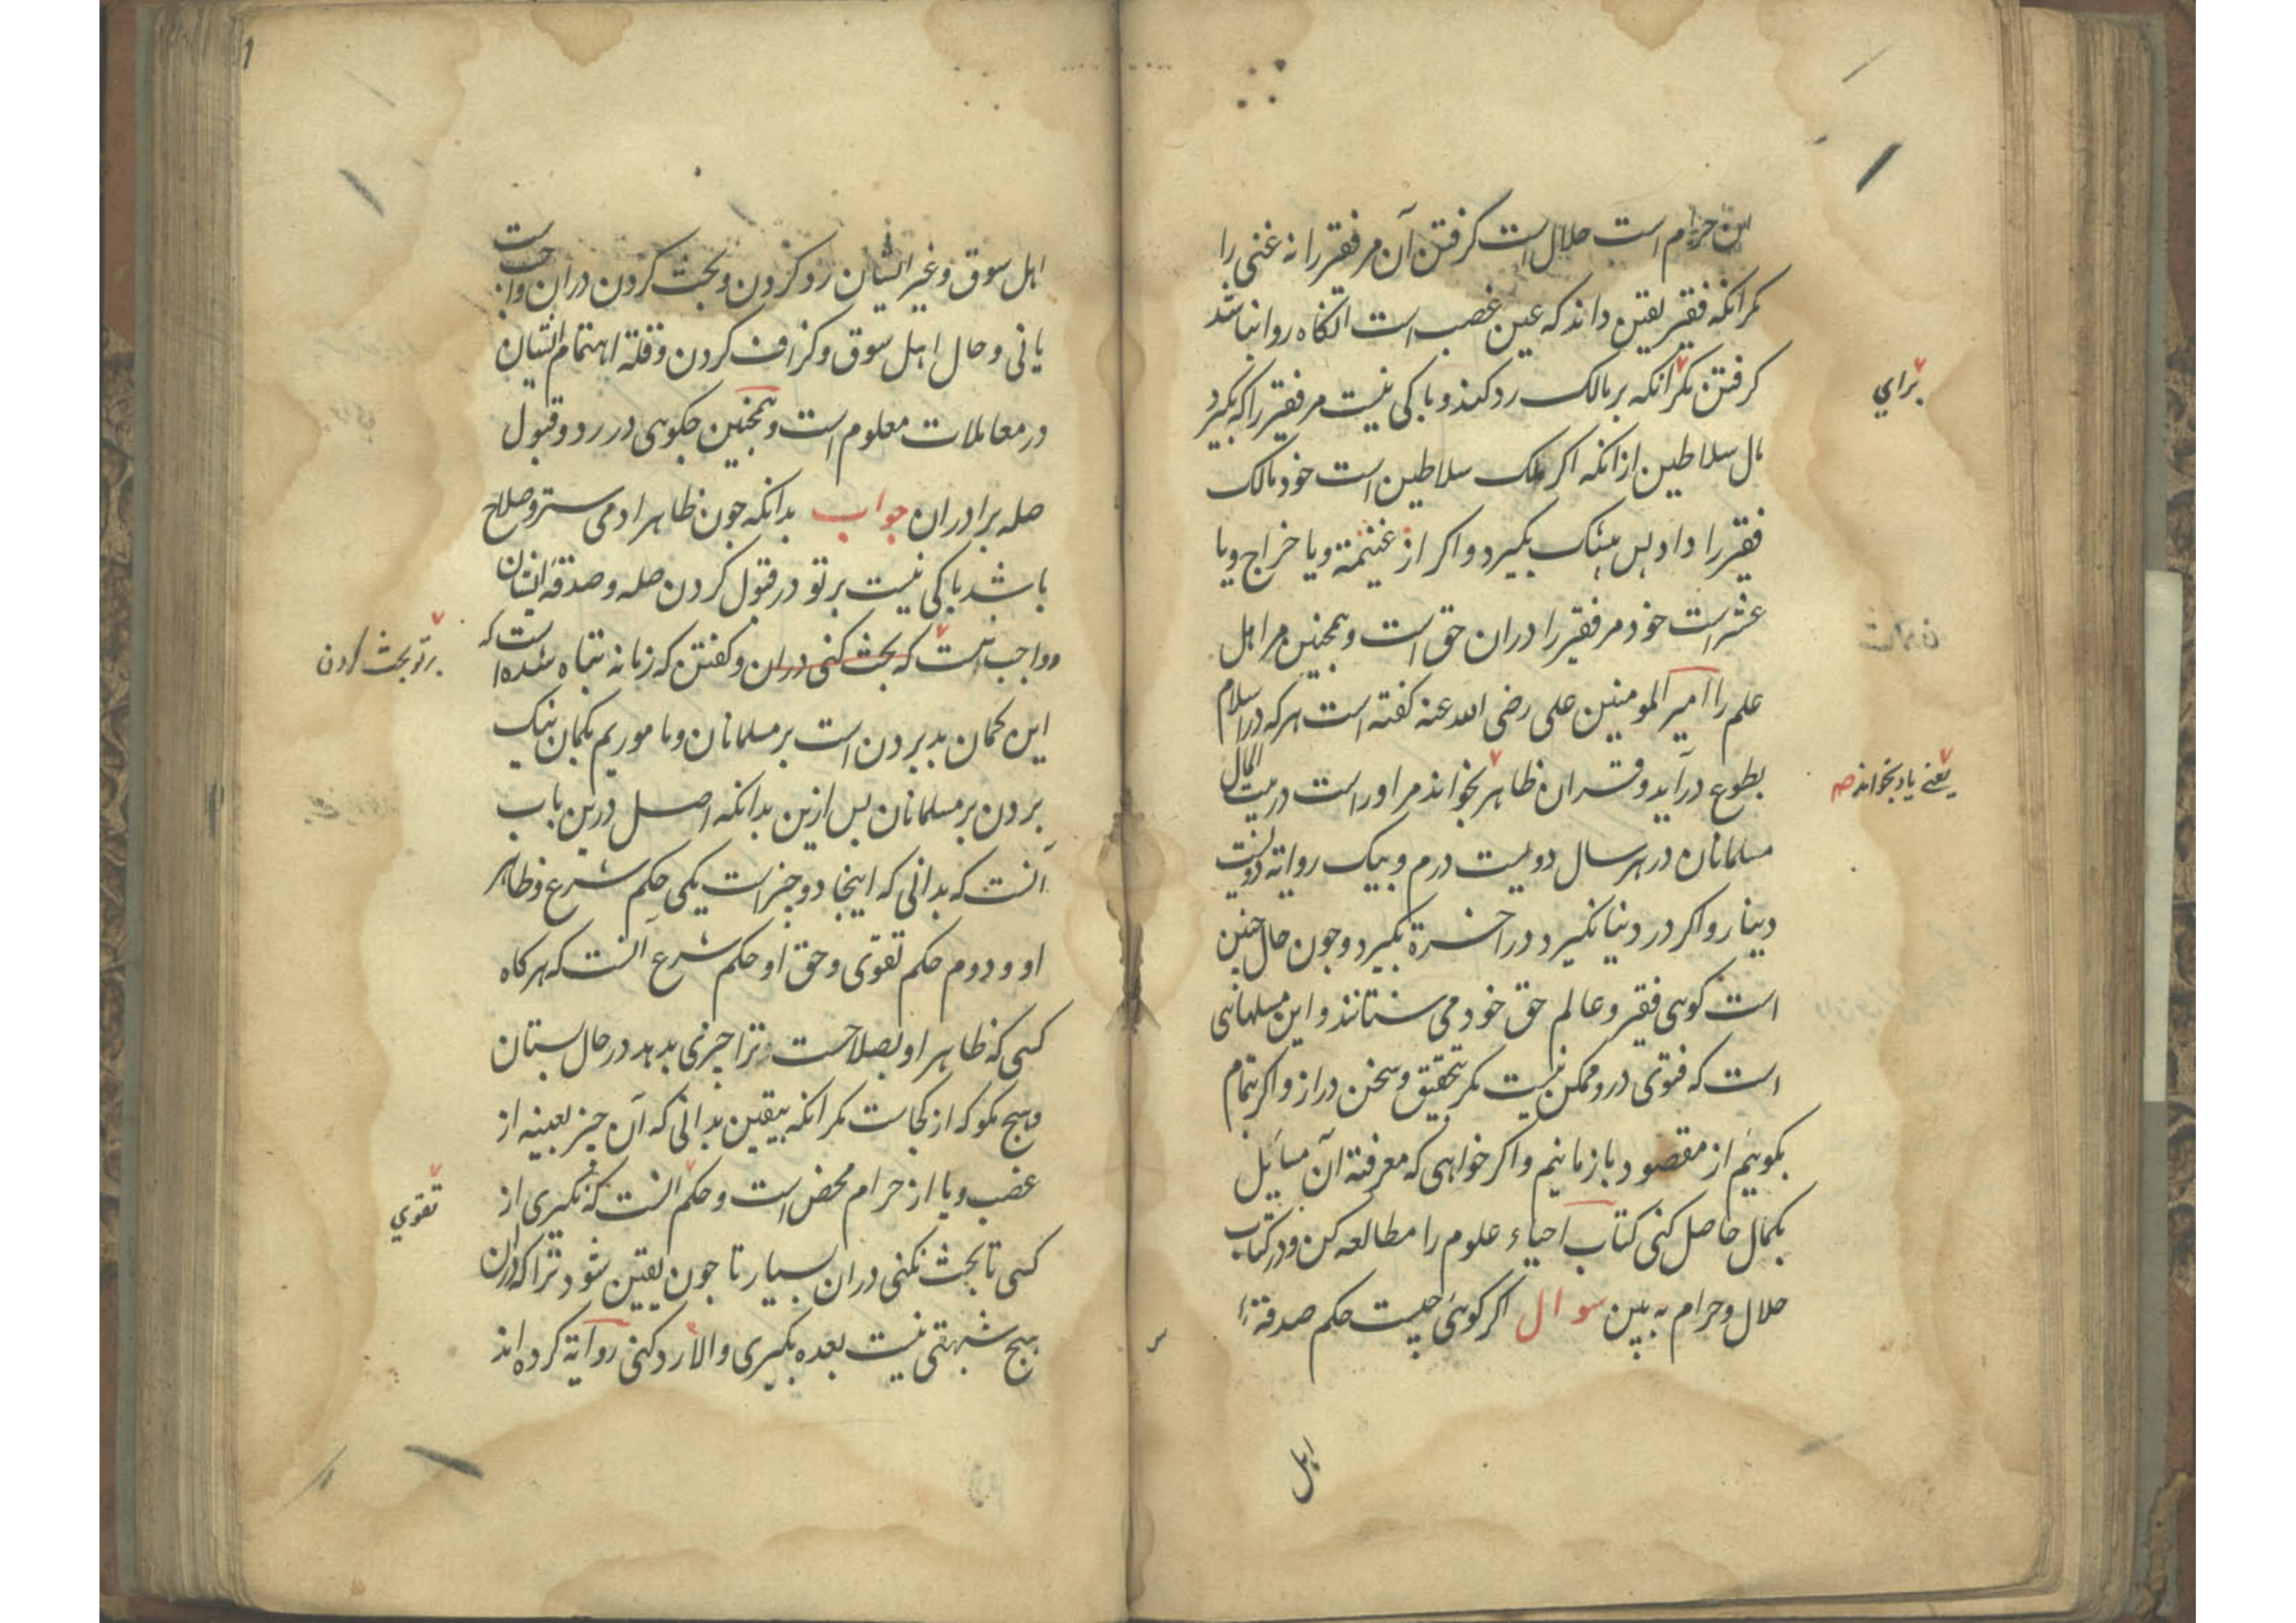 این حرام است حلال است کرفتن آن مر فقیر را نه غنی را
مکر انکه فقیر یقین داند که عین غصب است انکاه روا نباشد
کرفتن مکر انکه بر مالک رد کند و باکی نیست مر فقیر را که بکیرد
برای
مال سلاطین از انکه اکر ملک سلاطین است خود مالک
فقیر را داد پس بیشک بکیرد و اکر از غنیمة و یا خراج و یا
عشر است خود مر فقیر را دران حق است و همچنین مر اهل
علم را امیر المومنین علی رضی الله عنه کفته است هرکه در اسلام
بطوع در آید و قران ظاهر بخواند مر او راست در بیت المال
یعنی یاد بخواند صم
مسلمانان در هر سال دویست درم و بیک روایة دویست
دینار و اکر در دنیا نکیرد در اخرة بکیرد و جون حال جنین
است کوهی فقیر و عالم حق خود می ستانند و این مسلهائی
است که فتوی درو ممکن نیست مکر بتحقیق و سخن دراز و اکر بتمام
بکوئیم از مقصود باز مانیم و اکر خواهی که معرفة آن مسایل
بکمال حاصل کنی کتاب احیاء علوم را مطالعه کن و در کتاب
حلال و حرام به بین سوال اکر کوئی چیست حکم صدقهٔ
اهل
اهل سوق و غیر ایشان رد کردن و بحث کردن دران واجبست
یا نی و حال اهل سوق و کزاف کردن و قلة اهتمام ایشان
در معاملات معلوم است و همچنین جکوهی در رد و قبول
صله برادران جواب بدانکه جون ظاهر ادمی ستر و صلاح
باشد باکی نیست بر تو در قبول کردن صله و صدقه ایشان
و واجب نیست که بحث کنی دران و کفتن که زمانه تباه شده است که
بر تو بحث کردن
این کمان بد بردن است بر مسلمانان و ما موریم بکمان نیک
بردن بر مسلمانان پس ازین بدانکه اصل درین باب
آنست که بدانی که اینجا دو چیز است یکی حکم شرع و ظاهر
او و دوم حکم تقوی و حق او حکم شرع آنست که هرکاه
کسی که ظاهر او بصلاحست ترا چیزی بدهد در حال بستان
و هیج مکو که از کجاست مکر انکه بیقین بدانی که آن چیز بعینه از
غصب و یا از حرام محض است و حکم انست که نکیری از
تقوی
کسی تا بحث نکنی دران بسیار تا جون یقین شود ترا که دران
هیج شبهتی نیست بعده بکیری و الا رد کنی روایة کرده اند